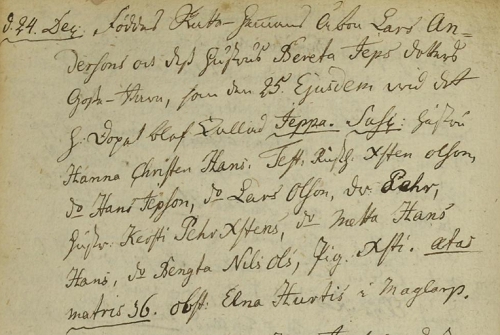 d. 24. Dec: Föddes Rutts-hemmans Åbon Lars An=
dersons och dess hustrus Bereta Jeps dotters
Goße-Barn, som den 25. Ejusdem wid det
h: Dopet blef kallad Jeppa. Susc: hustru
Hanna Christen Hans. Test: Xsten olson,
do Hans Jepson, do Lars Olson, dr. Pehr,
hustr. Kersti Pehr Xstens, do Metta Hans
Hans, do Bengta Nils Ols, Pig. Xsti. ætas
matris 36. obst: Elna Hurtis i Maglarp.